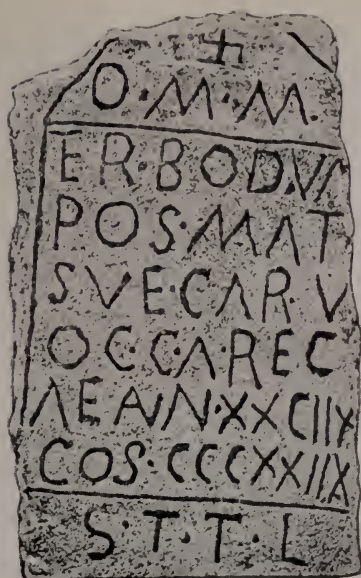 O·M·M·
ER·BODVS
POS·MAT
SVE·CAR·V
OC·CA·REC
AE ANN·XXCIIX
COS·CCCXXIIX
S·T·T·L